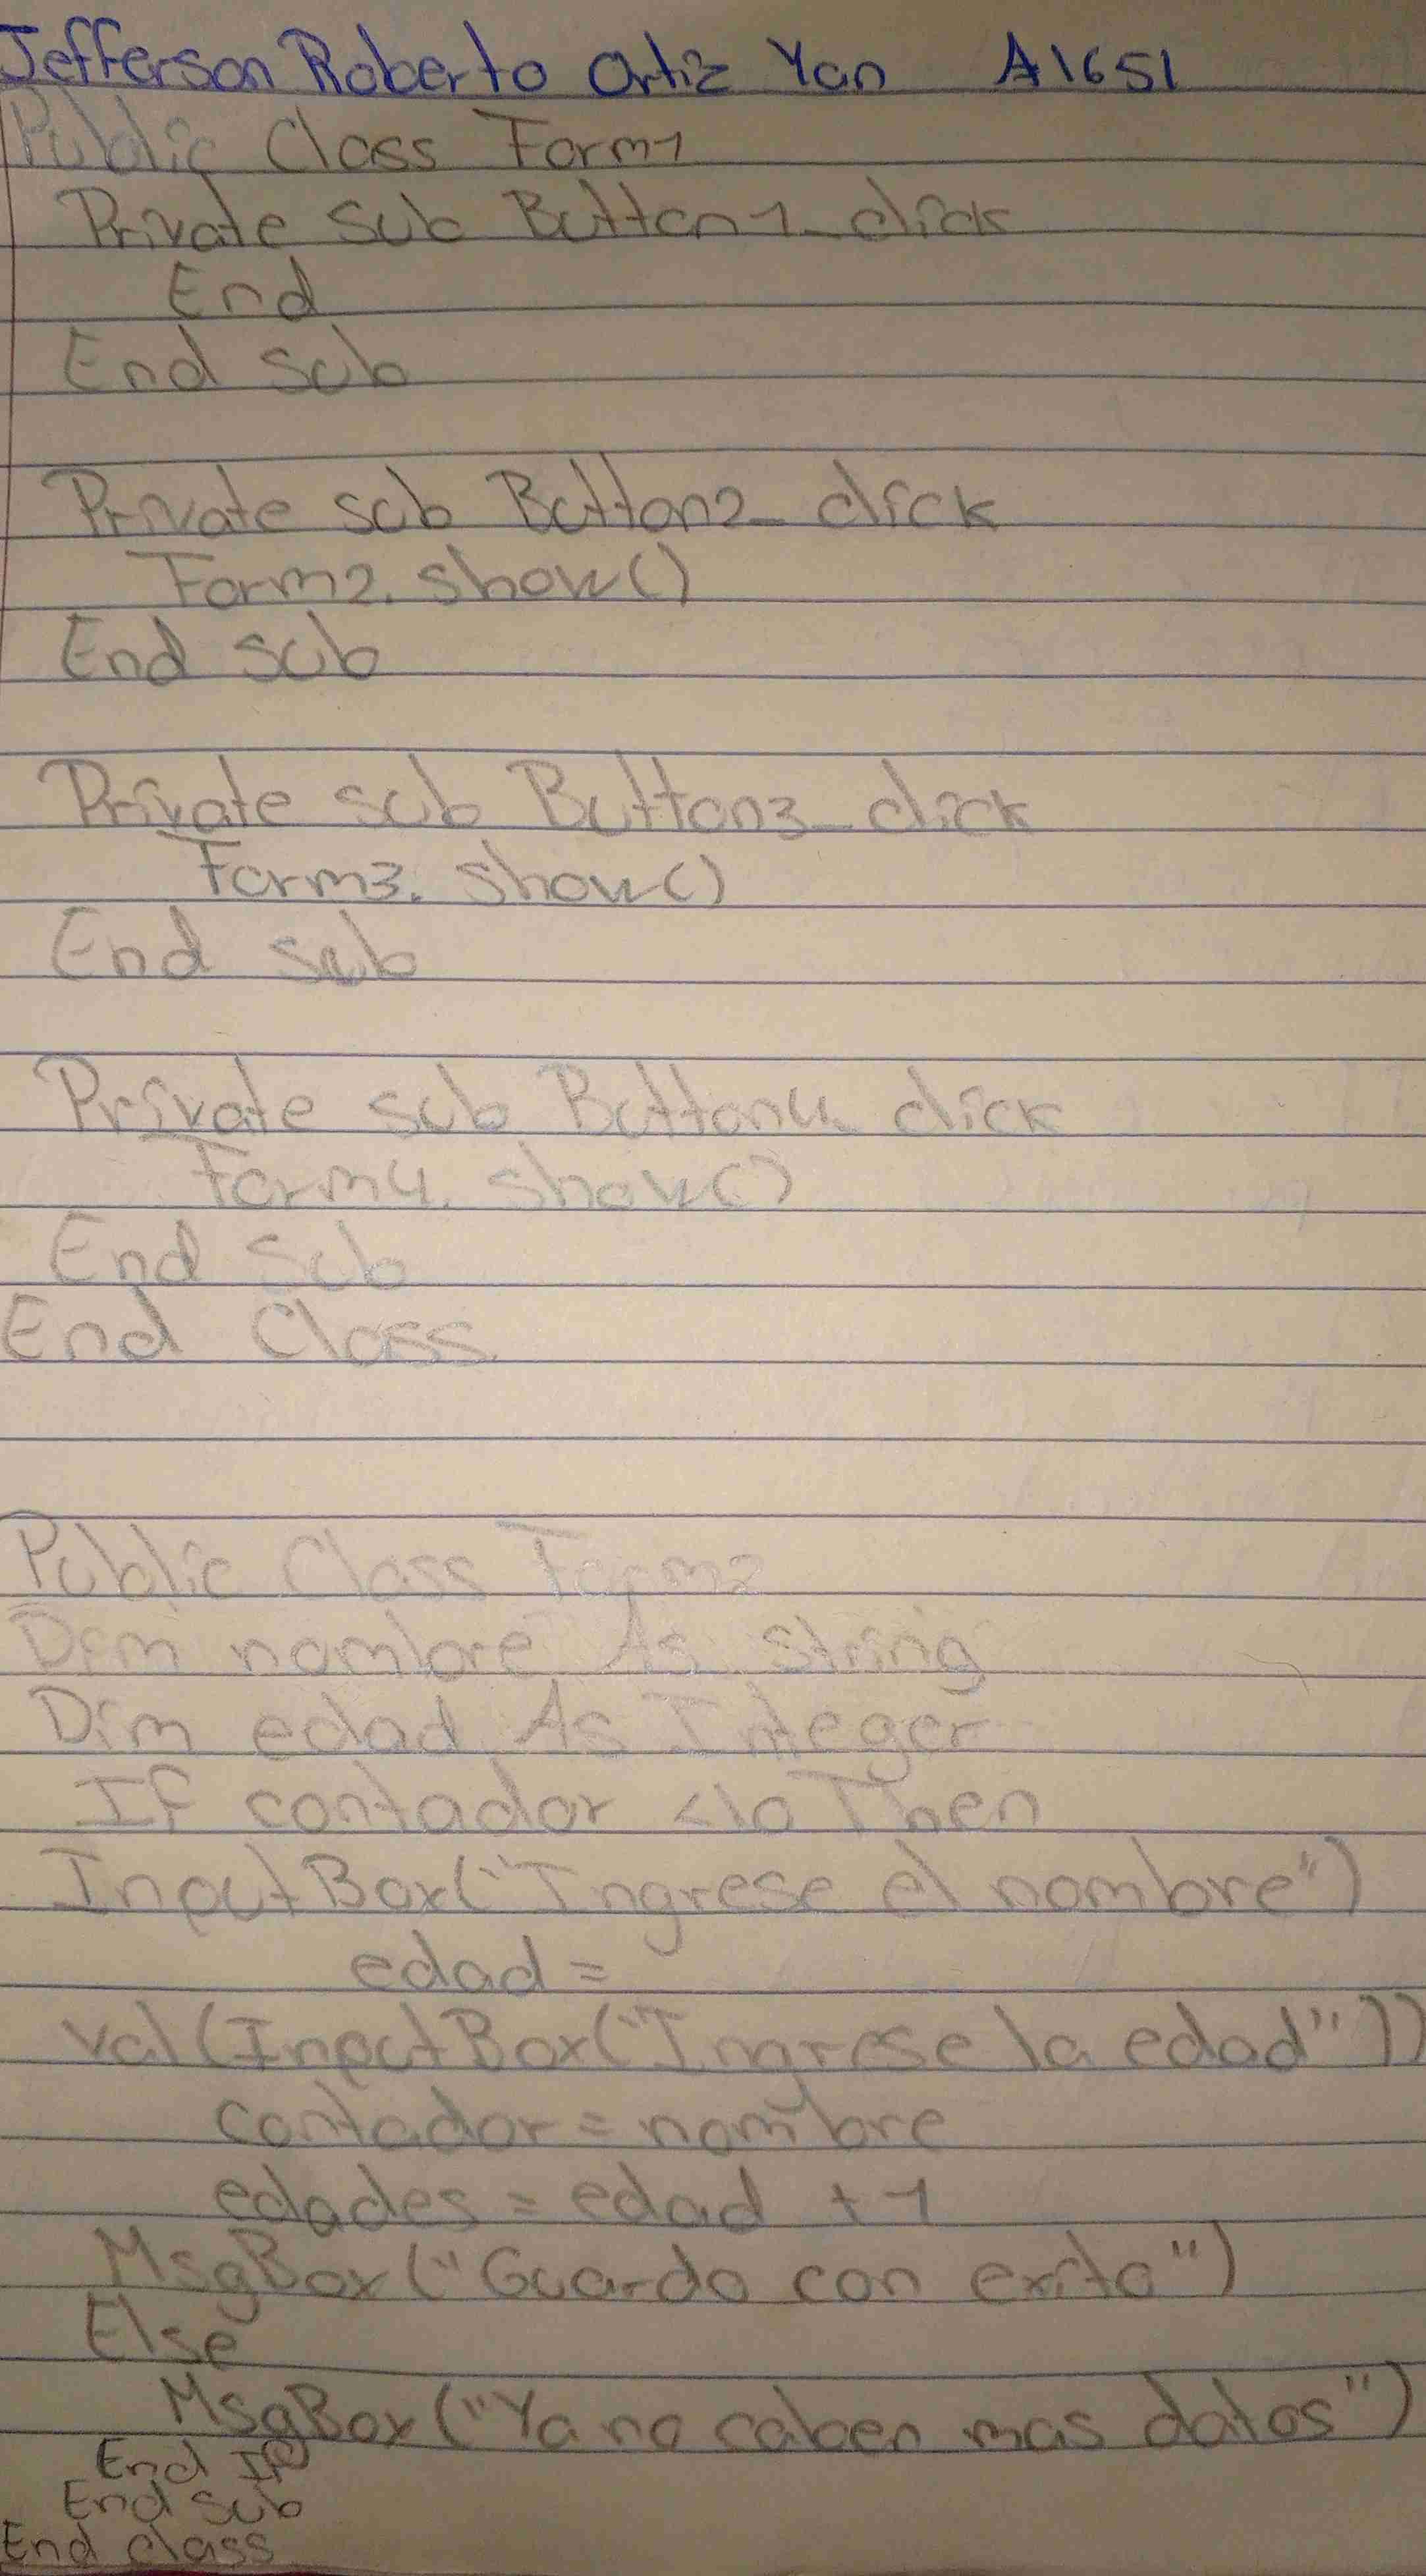 Jefferson Roberto Ortiz Yan A1651
Public Class Form1
Private Sub Button1_click
End
End Sub
Private sub Button2_click
Form2.show()
End sub
Private sub Button3_click
Form3.show()
End sub
Private sub Button4_click
Form4.show()
End Sub
End Class
Public Class Form2
Dim nombre As string
Dim edad As Integer
If contador <10 Then
InputBox("Ingrese el nombre")
edad =
val(InputBox("Ingrese la edad"))
contador = nombre
edades = edad +1
MsgBox("Guardo con exito")
Else
MsgBox("Ya no caben mas datos")
End If
End sub
End class